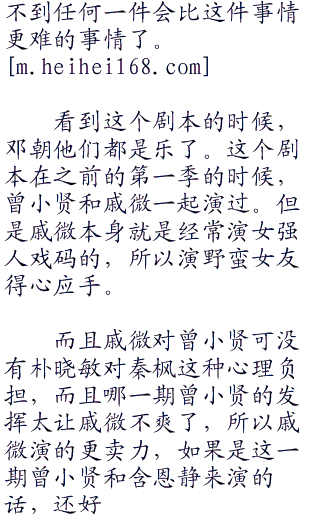 不到任何一件会比这件事情
更难的事情了。
[m.heihei168.com]
看到这个剧本的时候，
邓朝他们都是乐了。这个剧
本在之前的第一季的时候，
曾小贤和戚微一起演过。但
是戚微本身就是经常演女强
人戏码的，所以演野蛮女友
得心应手。
而且戚微对曾小贤可没
有朴晓敏对秦枫这种心理负
担，而且哪一期曾小贤的发
挥太让戚微不爽了，所以戚
微演的更卖力，如果是这一
期曾小贤和含恩静来演的
话，还好